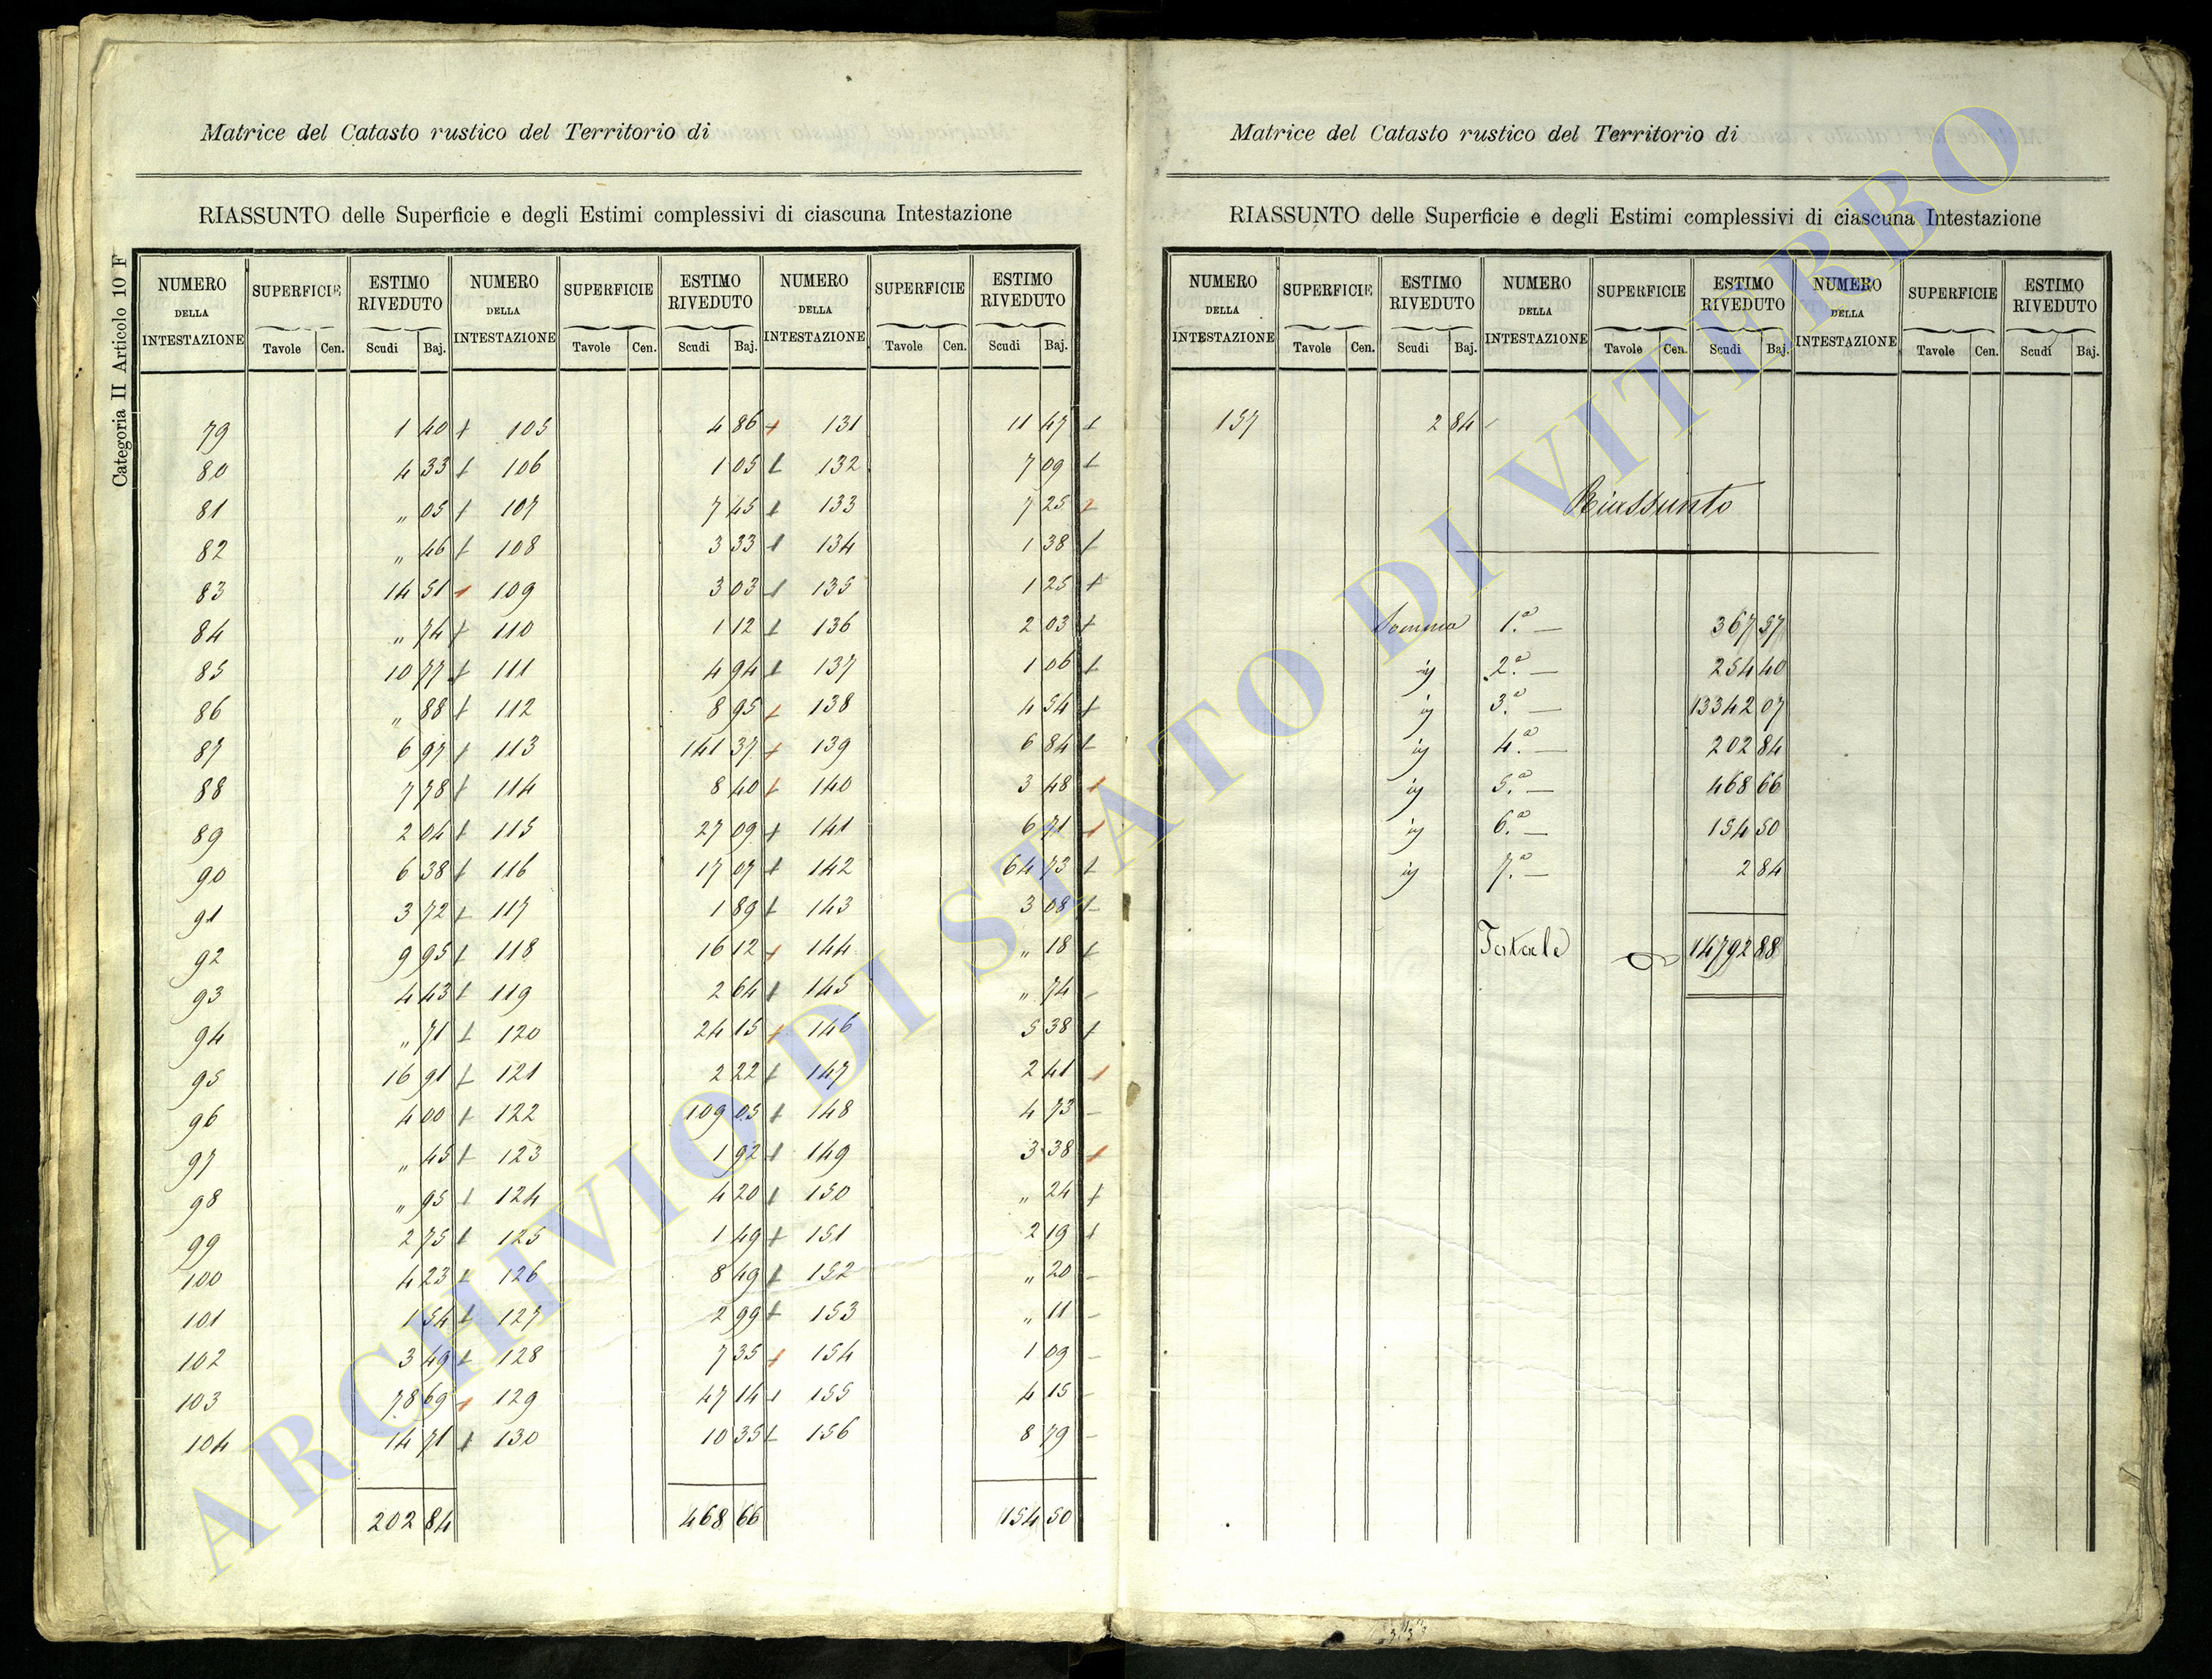 Matrice del Catasto rustico del Territorio di
RIASSUNTO delle Superficie e degli Estimi complessivi di ciascuna Intestazione
Categoria II Articolo 10 F
NUMERO DELLA INTESTAZIONE SUPERFICIE ESTIMO RIVEDUTO NUMERO DELLA INTESTAZIONE SUPERFICIE ESTIMO RIVEDUTO NUMERO DELLA INTESTAZIONE SUPERFICIE ESTIMO RIVEDUTO
Tavole Cen. Scudi Baj. Tavole Cen. Scudi Baj. Tavole Cen. Scudi Baj.
79 1 40 + 105 4 86 + 131 11 47 +
80 4 33 + 106 1 05 + 132 7 09 +
81 „ 05 + 107 7 45 + 133 7 25 +
82 „ 46 + 108 3 33 + 134 1 38 +
83 14 51 + 109 3 03 + 135 1 25 +
84 „ 74 + 110 1 12 + 136 2 03 +
85 10 77 + 111 4 94 + 137 1 06 +
86 „ 88 + 112 8 95 + 138 4 54 +
87 6 97 + 113 141 37 + 139 6 84 +
88 7 78 + 114 8 40 + 140 3 48 +
89 2 04 + 115 27 09 + 141 6 71 +
90 6 38 + 116 17 07 + 142 64 73 +
91 3 72 + 117 1 89 + 143 3 08 +
92 9 95 + 118 16 12 + 144 „ 18 +
93 4 43 + 119 2 64 + 145 „ 74 –
94 „ 71 + 120 24 15 + 146 5 38 +
95 16 91 + 121 2 22 + 147 2 41 +
96 4 00 + 122 109 05 + 148 4 73 –
97 „ 45 + 123 1 92 + 149 3 38 +
98 „ 95 + 124 4 20 + 150 „ 24 +
99 2 75 + 125 1 49 + 151 2 19 +
100 4 23 + 126 8 49 + 152 „ 20 –
101 1 54 + 127 2 99 + 153 „ 11 –
102 3 49 + 128 7 35 + 154 1 09 –
103 78 69 + 129 47 14 + 155 4 15 –
104 14 71 + 130 10 35 + 156 8 79 –
202 84 468 66 154 50
Matrice del Catasto rustico del Territorio di
RIASSUNTO delle Superficie e degli Estimi complessivi di ciascuna Intestazione
NUMERO DELLA INTESTAZIONE SUPERFICIE ESTIMO RIVEDUTO NUMERO DELLA INTESTAZIONE SUPERFICIE ESTIMO RIVEDUTO NUMERO DELLA INTESTAZIONE SUPERFICIE ESTIMO RIVEDUTO
Tavole Cen. Scudi Baj. Tavole Cen. Scudi Baj. Tavole Cen. Scudi Baj.
157 2 84
Riassunto
Somma 1.ª — 367 57
ig 2.ª — 254 40
ig 3.ª — 13342 07
ig 4.ª — 202 84
ig 5.ª — 468 66
ig 6.ª — 154 50
ig 7.ª — 2 84
Totale 14792 88
ARCHIVIO DI STATO DI VITERBO